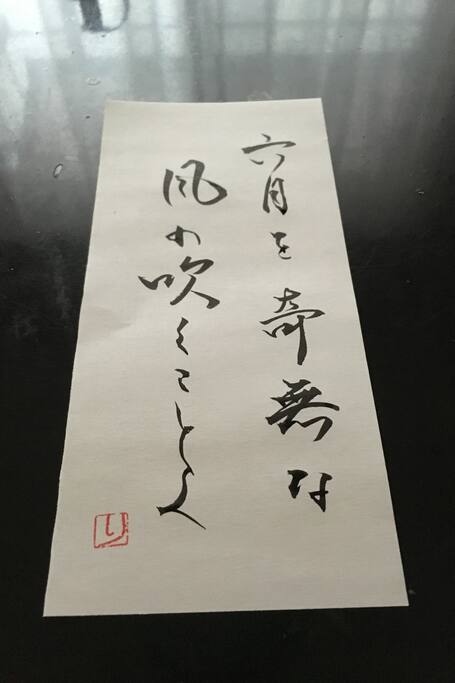 六月を奇麗な
風の吹くことよ
し